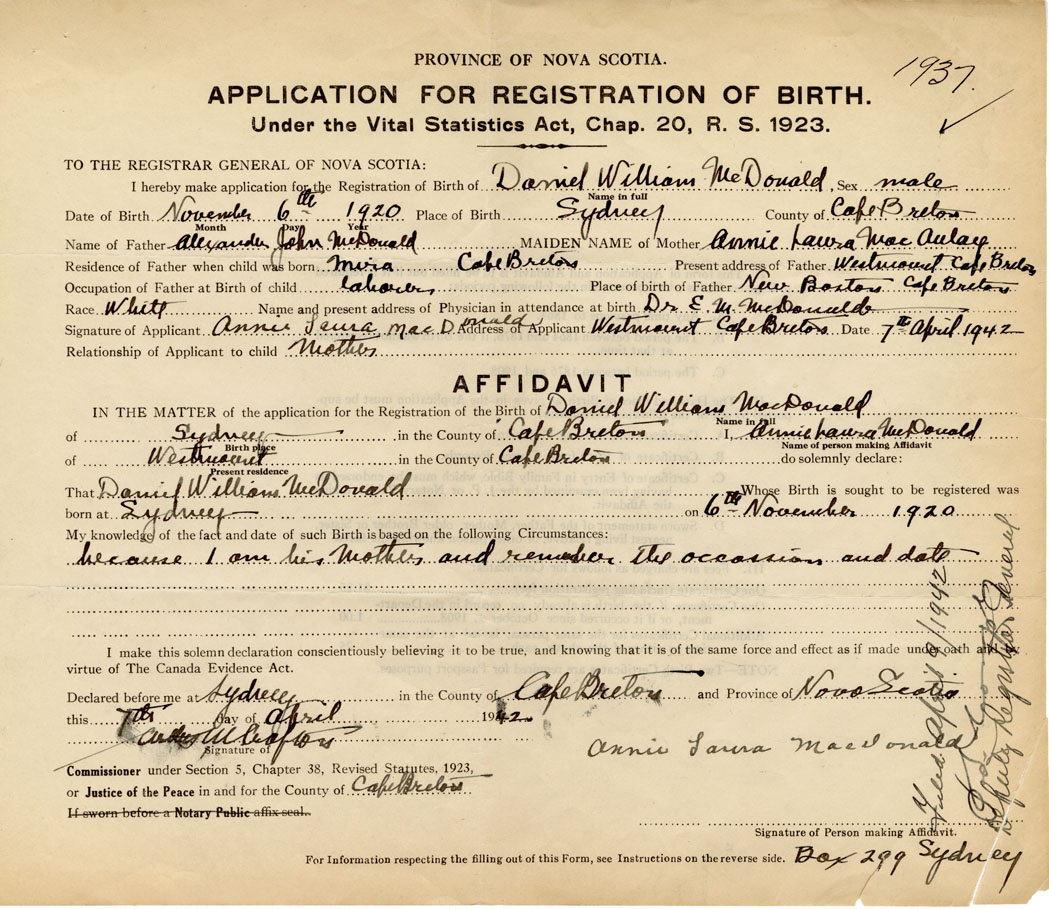 PROVINCE OF NOVA SCOTIA.
1937.
APPLICATION FOR REGISTRATION OF BIRTH.
Under the Vital Statistics Act, Chap. 20, R. S. 1923.
TO THE REGISTRAR GENERAL OF NOVA SCOTIA:
I hereby make application for the Registration of Birth of Daniel William McDonald, Sex male
Name in full
Date of Birth November 6th 1920 Place of Birth Sydney County of Cape Breton
Month Day Year
Name of Father Alexander John McDonald MAIDEN NAME of Mother Annie Laura Mac Aulay
Residence of Father when child was born Mira Cape Breton Present address of Father Westmount Cape Breton
Occupation of Father at Birth of child laborer Place of birth of Father New Boston Cape Breton
Race White Name and present address of Physician in attendance at birth Dr. E. M. McDonald
Signature of Applicant Annie Laura MacDonald Address of Applicant Westmount Cape Breton Date 7th April 1942
Relationship of Applicant to child Mother
AFFIDAVIT
IN THE MATTER of the application for the Registration of the Birth of Daniel William MacDonald
Name in full
of Sydney in the County of Cape Breton I, Annie Laura McDonald
Birth place Name of person making Affidavit
of Westmount in the County of Cape Breton do solemnly declare:
Present residence
That Daniel William McDonald Whose Birth is sought to be registered was
born at Sydney on 6th November 1920
My knowledge of the fact and date of such Birth is based on the following Circumstances:
because I am his Mother and remember the occassion and date
I make this solemn declaration conscientiously believing it to be true, and knowing that it is of the same force and effect as if made under oath and by
virtue of The Canada Evidence Act.
Declared before me at Sydney in the County of Cape Breton and Province of Nova Scotia
this 7th day of April 1942
Signature of
Annie Laura MacDonald
Commissioner under Section 5, Chapter 38, Revised Statutes, 1923,
or Justice of the Peace in and for the County of Cape Breton
If sworn before a Notary Public affix seal.
Signature of Person making Affidavit.
For Information respecting the filling out of this Form, see Instructions on the reverse side. Box 299 Sydney
Filed April 9/1942
Deputy Registrar General